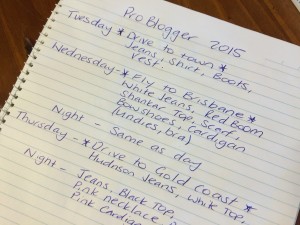 ProBlogger 2015
Tuesday * Drive to town *
Jeans, Shirt, Boots,
Vest.
Wednesday - * Fly to Brisbane *
White Jeans, Red Boom
Shankar Top, Scarf,
Bowshoes, Cardigan
(Undies, bra)
Night - Same as day
Thursday - * Drive to Gold Coast *
Hudnson Jeans, White Top,
Night - Jeans, Black Top,
Pink necklace,
Pink Cardigan